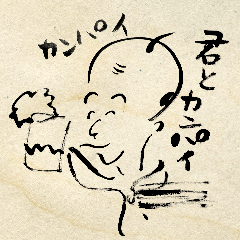 カンパイ
君とカンパイ